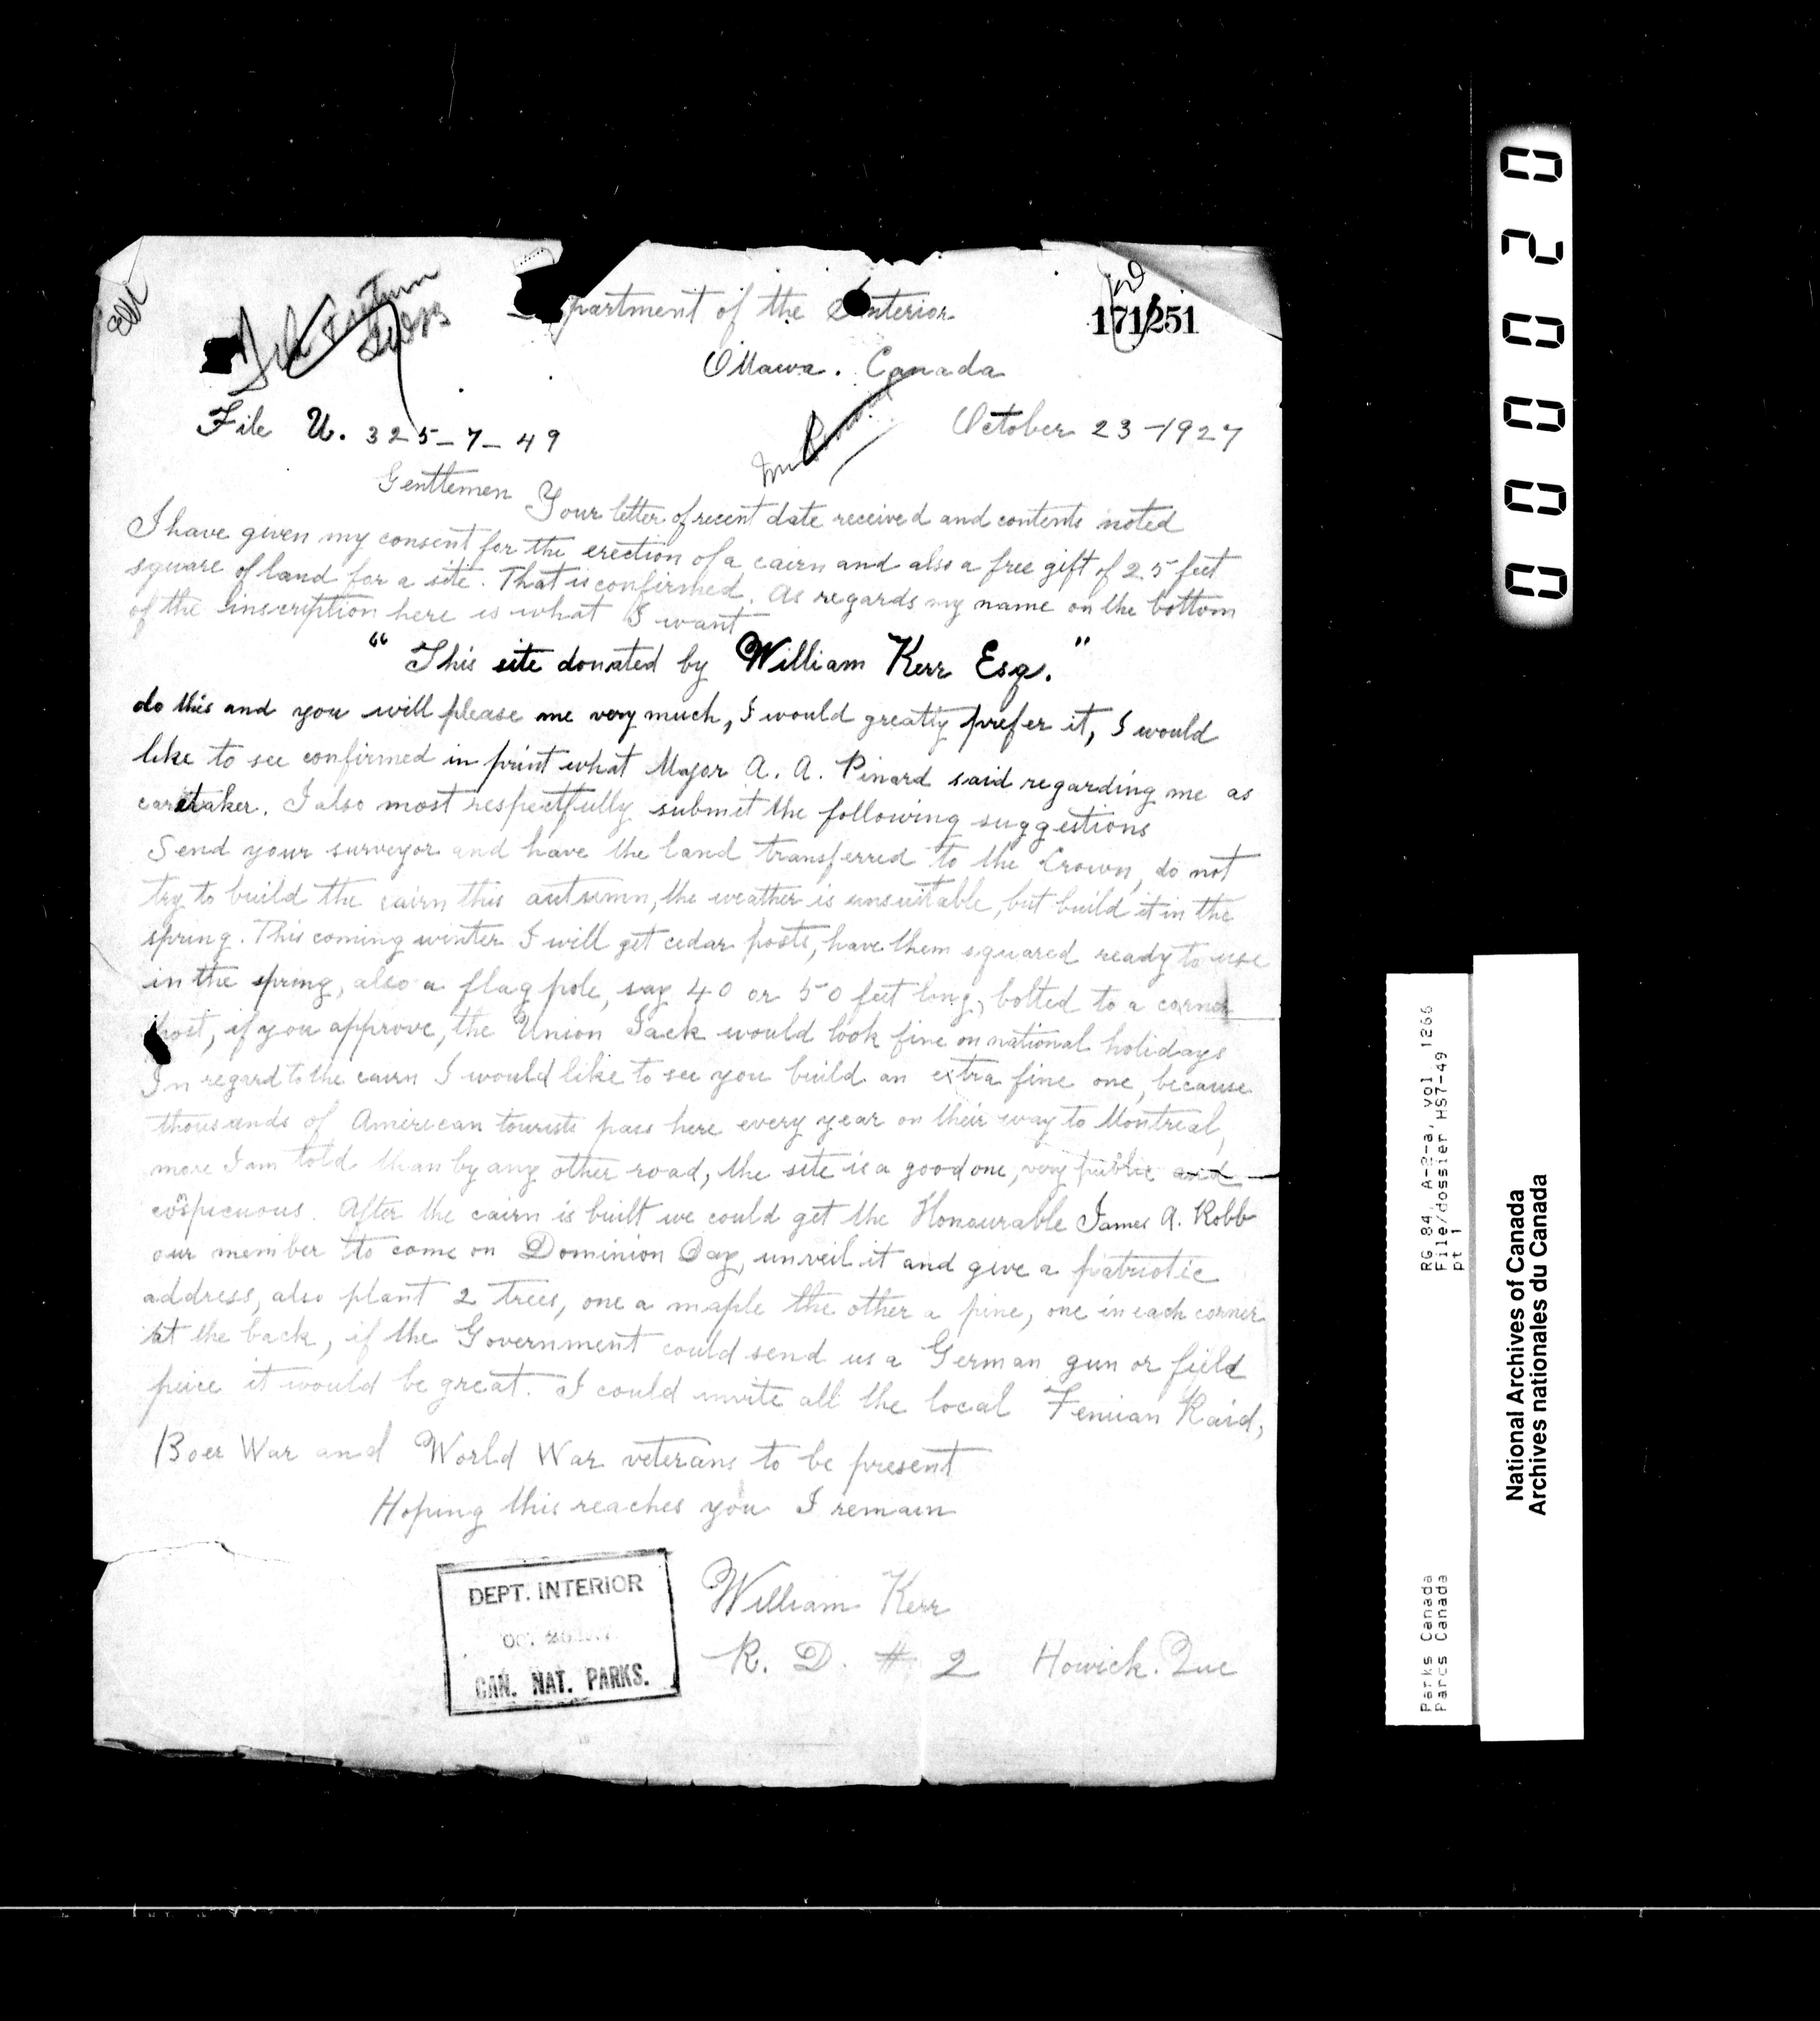 171251
Department of the Interior
Ottawa. Canada
File U. 325-7-49
October 23-1927
Gentlemen
Your letter of recent date received and contents noted
I have given my consent for the erection of a cairn and also a free gift of 25 feet
square of land for a site. That is confirmed. As regards my name on the bottom
of the inscription here is what I want
"This site donated by William Kerr Esq."
do this and you will please me very much, I would greatly prefer it, I would
like to see confirmed in print what Major A. A. Pinard said regarding me as
caretaker. I also most respectfully submit the following suggestions
Send your surveyor and have the land transferred to the Crown, do not
try to build the cairn this autumn, the weather is unsuitable, but build it in the
spring. This coming winter I will get cedar posts, have them squared ready to use
in the spring, also a flag pole, say 40 or 50 feet long, bolted to a corner
post, if you approve, the Union Jack would look fine on national holidays
In regard to the cairn I would like to see you build an extra fine one, because
thousands of American tourists pass here every year on their way to Montreal,
more I am told than by any other road, the site is a good one, very public and
cospicuous. After the cairn is built we could get the Honourable James A. Robb
our member to come on Dominion Day, unveil it and give a patriotic
address, also plant 2 trees, one a maple the other a pine, one in each corner
at the back, if the Government could send us a German gun or field
peice it would be great. I could invite all the local Fenian Raid,
Boer War and World War veterans to be present
Hoping this reaches you I remain
William Kerr
R. D. # 2 Howick. Que
DEPT. INTERIOR
CAN. NAT. PARKS.
000020
RG 84, A-2-a, vol 1266
File/dossier HS7-49
pt 1
Parks Canada
Parcs Canada
National Archives of Canada
Archives nationales du Canada